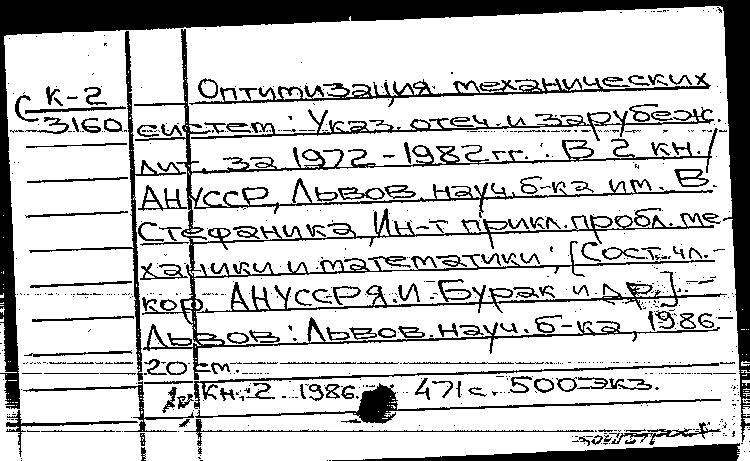 С К-2
3160
Оптимизация механических
систем : Указ. отеч. и зарубеж.
лит. за 1972-1982 гг. : В 2 кн. /
АН УССР, Львов. науч. б-ка им. В.
Стефаника, Ин-т прикл. пробл. ме-
ханики и математики ; [Сост. чл.-
кор. АН УССР Я.И. Бурак и др.]. -
Львов : Львов. науч. б-ка, 1986-
20 см.
Кн. 2. 1986. 471 с. 500 экз.